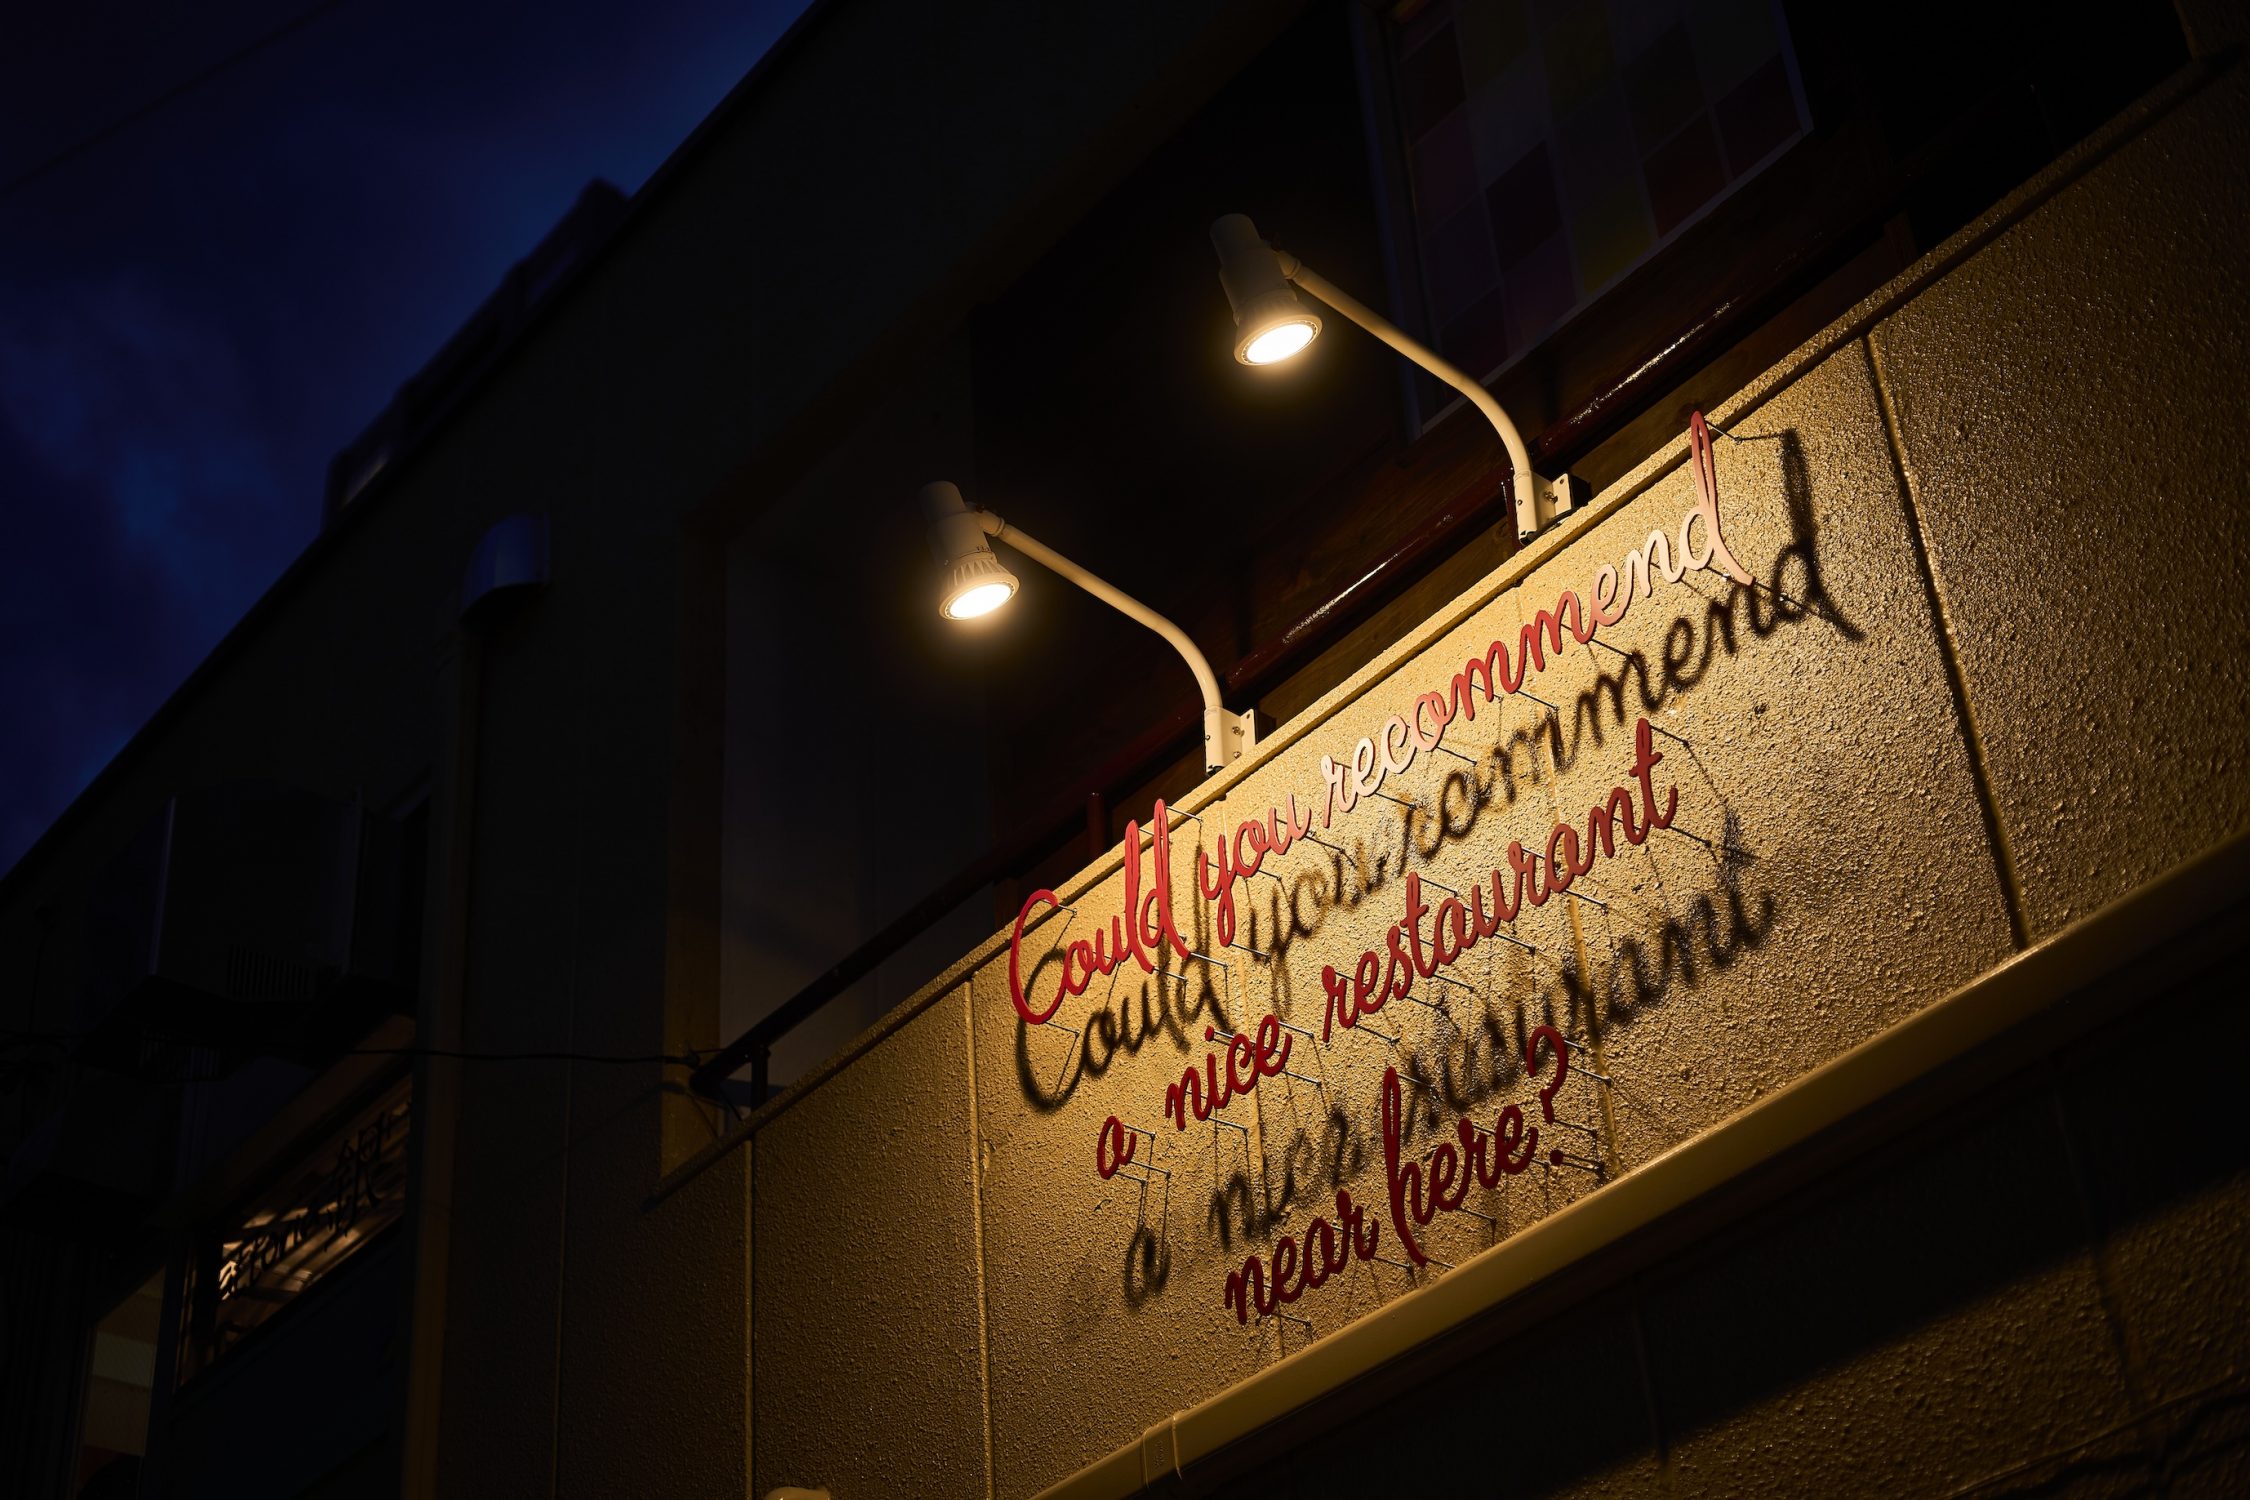 Could you recommend
a nice restaurant
near here?